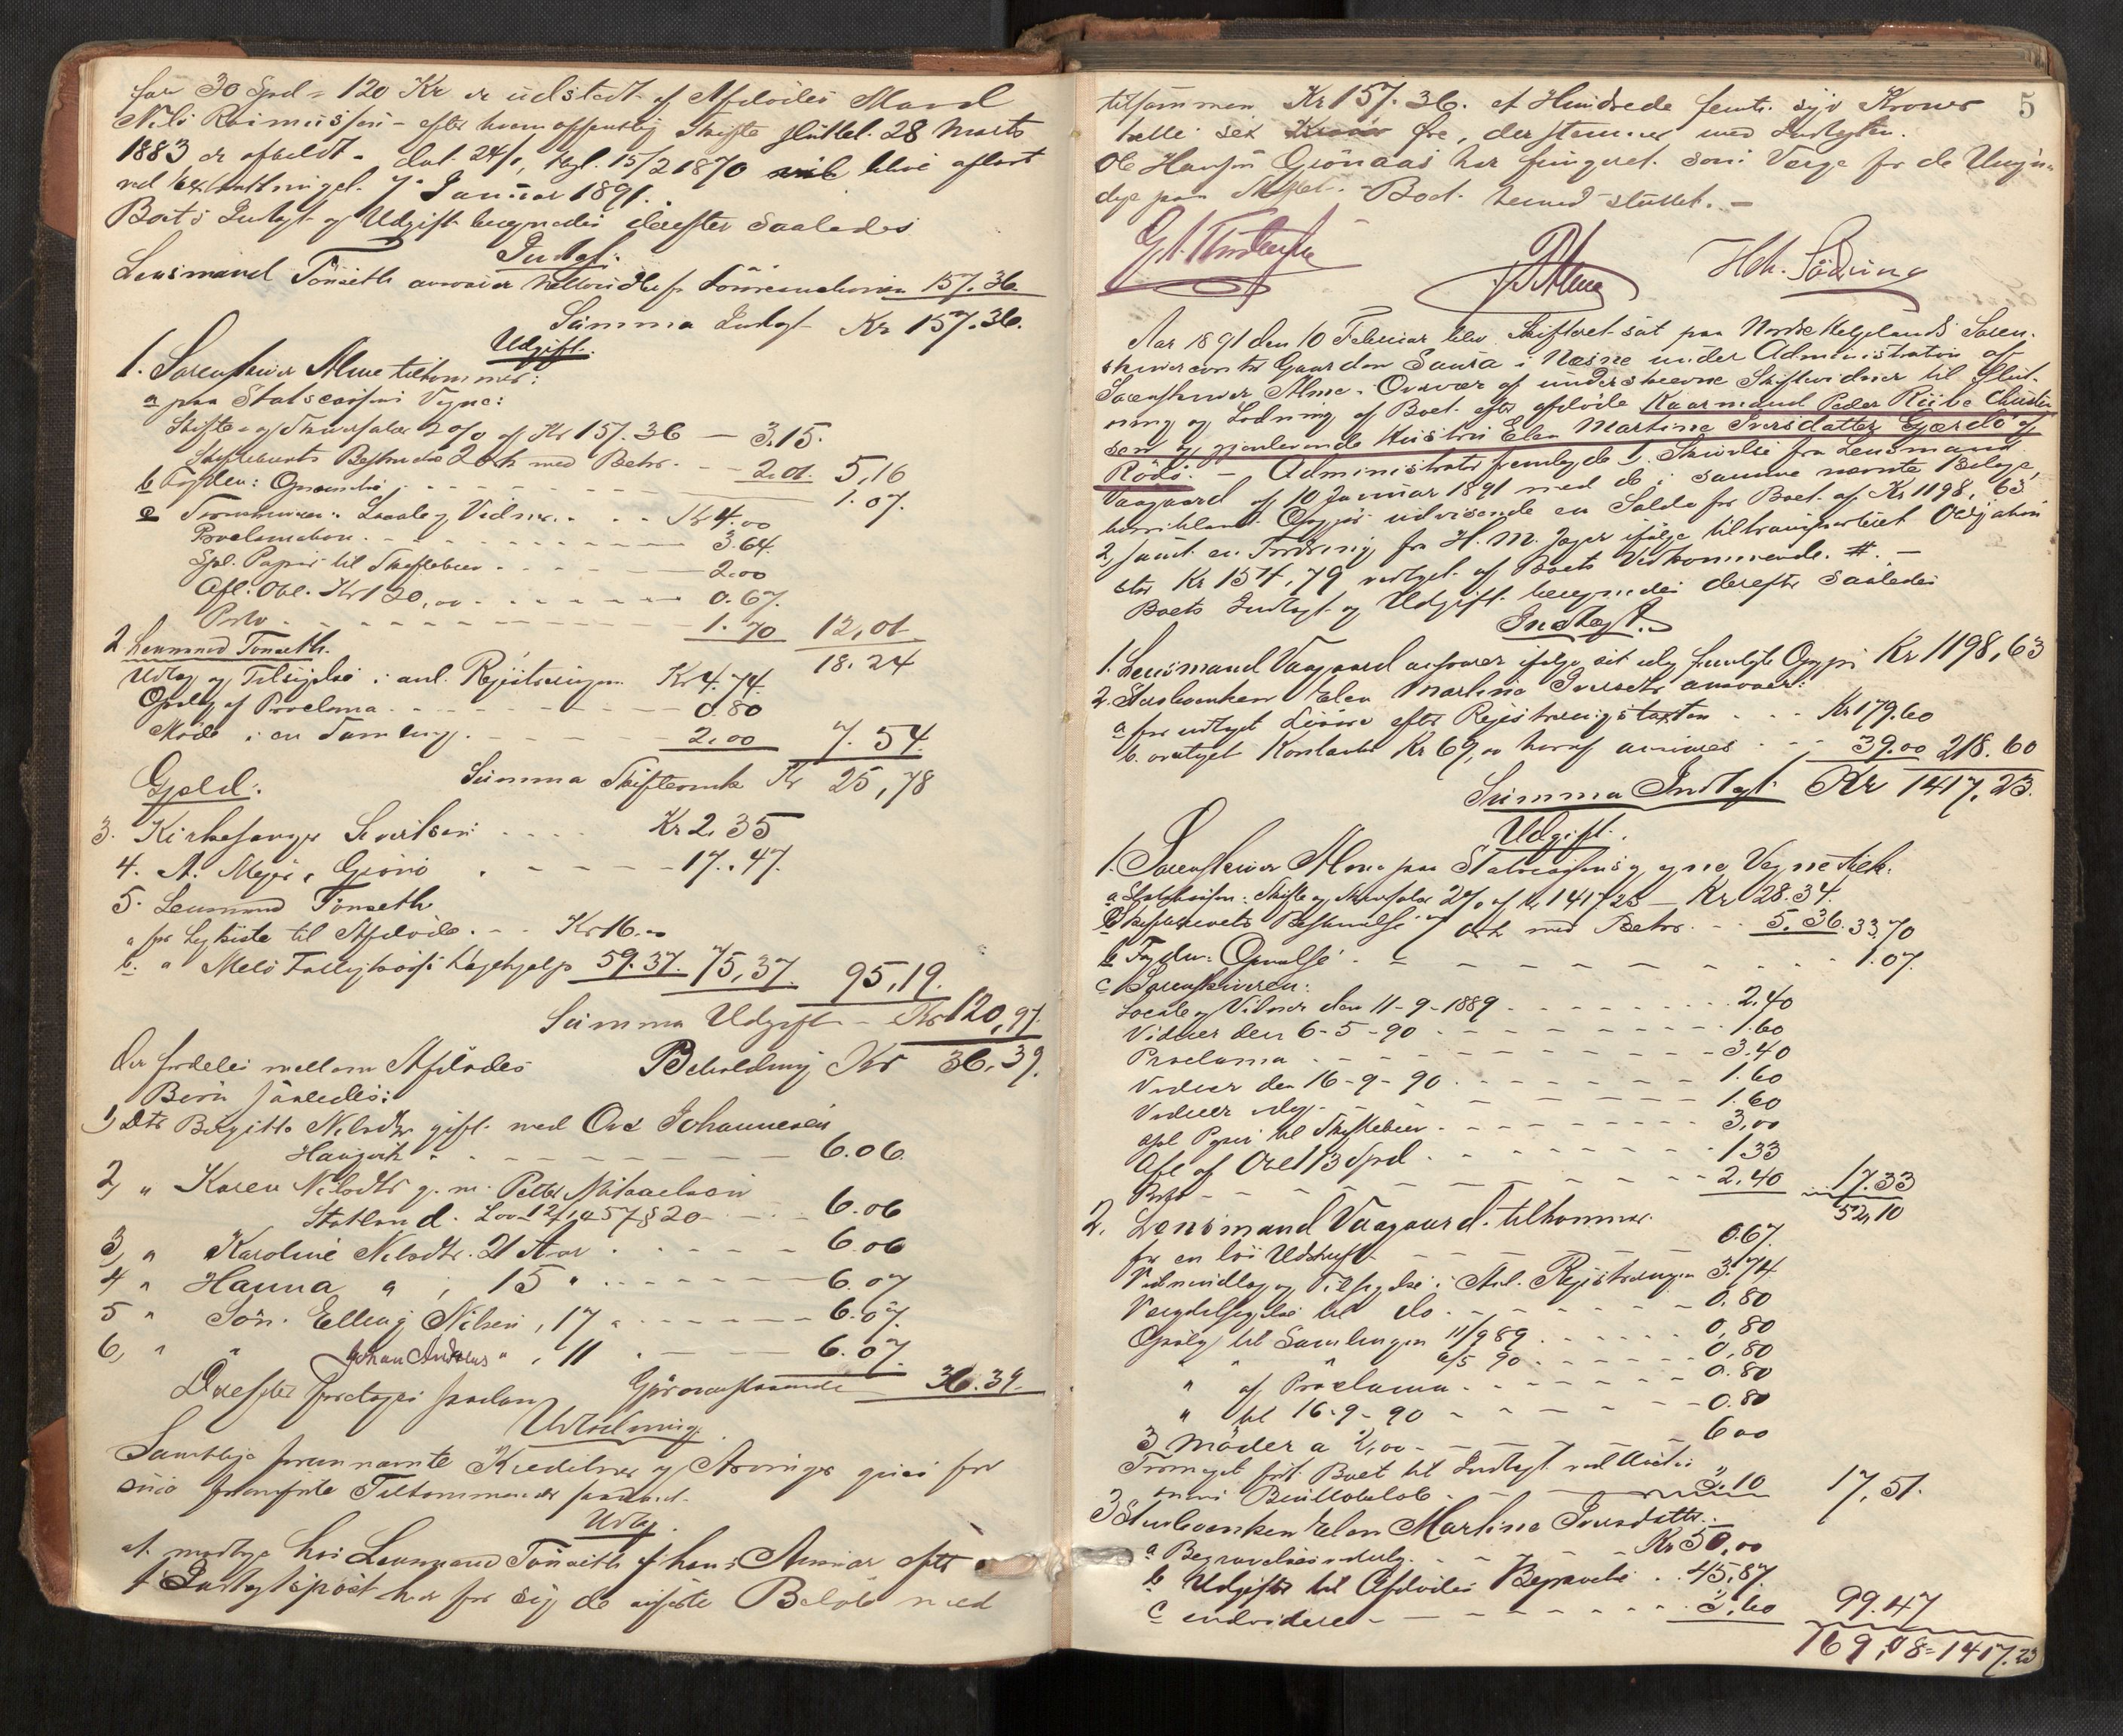 for 30 Spd = 120 Kr er udstedt af Afdødes Mand
Nils Rasmussen - efter hvem offentlig Skifte sluttet 28 Marts
1883 er afholdt - dat. 24/1, tgl. 15/2 1870 vil blive aflyst
ved Januar 1891.
Boets Indtægt og Udgift beregnedes derefter saaledes
Indtægt:
Lensmand Tönseth ansvarer 157.36
Summa Indtægt Kr 157.36.
Udgift:
1. Sorenskriver Alme tilkommer:
a paa Statscassens Vegne:
Skifte- og Skriversalær 2% af Kr 157.36 — 3.15.
Skiftebrevets Beskrivelse 2 Ark med Bekr. - 2.01. 5,16
b Fogden: 1.07.
c Sorenskriveren: Locale og Vidner . . Kr 4.00
Proclamation . - - - 3.64.
Spl. Papir til Skiftebrev . - - - 2.00
Afl. Obl. Kr 120,00 . - - - 0.67.
Porto - - - 1.70 12,01
18.24
2 Lensmand Tönseth.
Udlæg og Tilsigelse i anl. Registreringen Kr 4.74.
Opslag af Proclama - - - 0.80
Møde i en Samling. - - - 2.00 7.54.
Summa Skifteomk. Kr 25,78
Gjæld:
3. Kirkesanger Sivertsen . . . . Kr 2.35
4. A. Mejer, . - - - 17.47.
5. Lensmand Tönseth
a for Ligkiste til Afdøde . - - Kr 16.00
b. " Melö Fattigkasse Lægehjælp 59.37. 75,37. 95,19.
Summa Udgift - Kr 120,97.
Beholdning Kr 36,39.
Der fordeles mellem Afdødes
Børn saaledes:
1, Dtr Birgitte Nilsdtr. gift med Ove Johannesen
6.06.
2, " Karen Nilsdtr g. m. Petter Mikaelsen
Stokland. Lov 12/10 57 § 20 - - - 6.06
3, " Karoline Nilsdtr. 21 Aar . - - - 6.06
4 " Hanna " , 15 " - - - 6.07
5 " Sön. Elling Nilsen, 17 " - - - 6.07.
6, " " Johan Andreas " , 11 " - - - 6.07.
Gjør ovenstaaende 36.39.
Derefter foretoges saadan
Udlodning.
Samtlige forannævnte Kreditorer og Arvinger gives for
sine anførte Tilkommende saadant
Udlæg.
at modtage hos Lensmand Tönseth af hans Ansvar efter
1 Indtægtspost hver for sig de anførte Beløb med
5
tilsammen Kr 157.36. et Hundrede femti syv Kroner
tretti sex Kroner Øre, der stemmer med Indtægten.
Ole Hansen Grönaas har fungeret som Værge for de Umyn-
dige paa Skiftet. - Boet hermed sluttet. -
Alme Hck. Södring
Aar 1891 den 10 Februar blev Skifteret sat paa Nordre Helgelands Soren-
skrivercontor Gaarden Saura i Næsne under Administration af
Sorenskriver Alme. Overvær af underskrevne Skiftevidner til Slut-
ning og Lodning af Boet efter afdøde Kaarmand Peder Riibe Christen
sen og gjenlevende Hustru Elen Martine Iversdatter Gjærdö af
Rödö. - Administrator fremlagde 1. Skrivelse fra Lensmand
Vaagaard af 10 Januar 1891 med de i samme nævnte Bilage,
hvoriblandt Opgjør udvisende en Saldo for Boet af Kr 1198,63
2, samt en Fordring fra H. M. Jager ifølge tiltransporteret Obligation
stor Kr 154,79 vedtaget af Boets Vedkommende. #. -
Boets Indtægt og Udgift beregnedes derefter saaledes
Indtægt.
1. Lensmand Vaagaard ansvarer ifølge sit idag fremlagte Opgjør Kr 1198,63
2. Sterboenken Elen Martine Iversdtr. ansvarer:
a for udtaget Løsøre efter Registreringstaxten . - . Kr 179.60
b. modtaget Kontanter Kr 69,00 heraf ansvares - . - 39.00 218.60
Summa Indtægt Kr 1417,23.
Udgift.
1. Sorenskriver Alme paa Statscassens og egne Vegne tilk.
a Statskassen: Skifte og Skriversalær 2% af Kr 1417.23 — Kr 28.34.
Skiftebrevets Beskrivelse 7 Ark med Bekr. . - 5.36. 33.70
b Fogden: - - - 1.07.
c Sorenskriveren:
Locale og Vidner den 11-9-1889 - - - 2,40
Vidner den 6-5-90 - - - 1.60
Proclama - - - 3.40
Vidner den 16-9-90 - - - 1.60
Vidner idag - - - 1.60
Spl Papir til Skiftebrev - - - 3,00
Afl af Obl 113 Spd - - - 1.33
Porto - - - 2,40 17.33
52,10
2. Lensmand Vaagaard tilkommer
for en løs Udskrift - - - 0.67.
Vidneudlæg og Tilsigelse i Anl. Registreringen 3.74
Værgetilsigelse til do. - - - 0.80
Opslag til Samlingen 11/9 89 . - - - 0,80
" " " 6/5 90 - - - 0,80
" af Proclama - - - 0.80
" til 16-9-90 - - - 0.80
3 Møder a 2,00 - - - 6.00
Boet til Indtægt ved
Beløb - - - 3.10 17,51.
3 Sterboenken Elen Martine Iversdatter:
a Begravelses - - - Kr 50,00
b Udgifter til Afdødes Begravelse . 45,87.
c endvidere - - - 3,60 99.47
169,08 = 1417.23